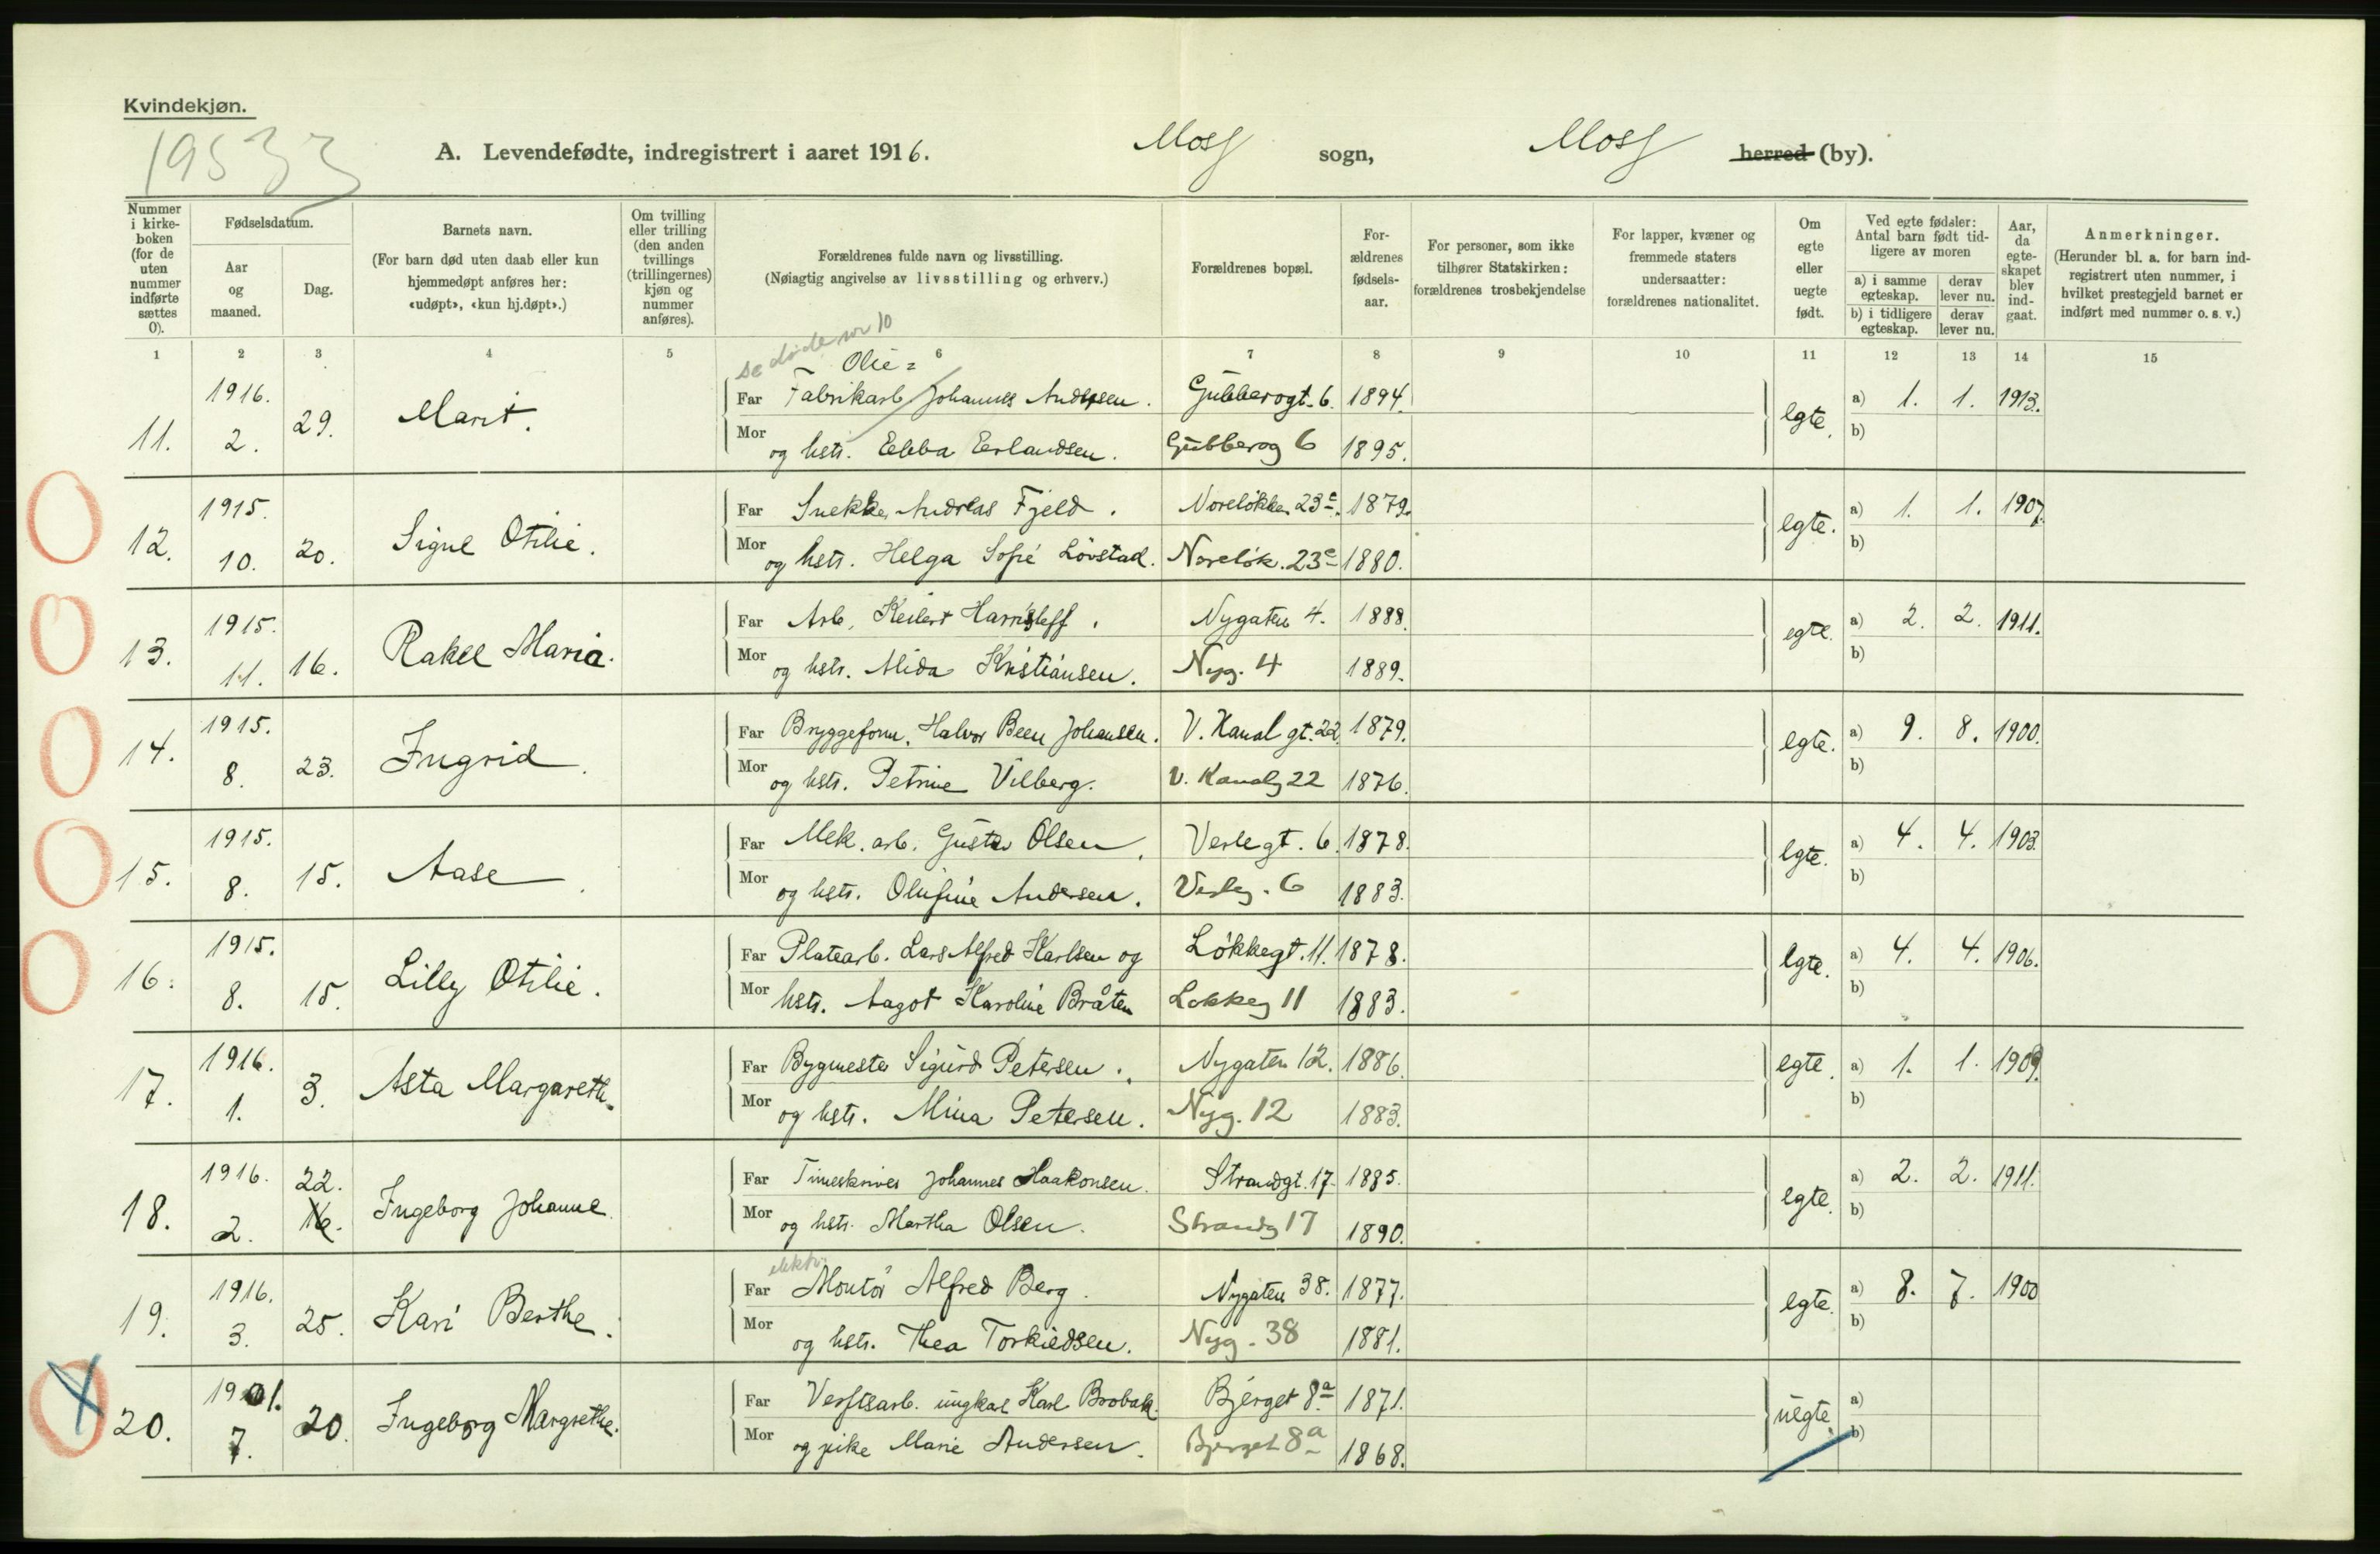 Kvindekjøn.
19533
A. Levendefødte, indregistrert i aaret 1916. Moss sogn, Moss herred (by).
Nummer i kirkeboken (for de uten nummer indførte sættes 0).
Fødselsdatum.
Aar og maaned.
Dag.
Barnets navn.
(For barn død uten daab eller kun hjemmedøpt anføres her: «udøpt», «kun hj.døpt».)
Om tvilling eller trilling (den anden tvillings (trillingernes) kjøn og nummer anføres).
Forældrenes fulde navn og livsstilling.
(Nøiagtig angivelse av livsstilling og erhverv.)
Forældrenes bopæl.
Forældrenes fødselsaar.
For personer, som ikke tilhører Statskirken: forældrenes trosbekjendelse
For lapper, kvæner og fremmede staters undersaatter: forældrenes nationalitet.
Om egte eller uegte født.
Ved egte fødsler: Antal barn født tidligere av moren
a) i samme egteskap.
derav lever nu.
b) i tidligere egteskap.
derav lever nu.
Aar, da egteskapet blev indgaat.
Anmerkninger.
(Herunder bl. a. for barn indregistrert uten nummer, i hvilket prestegjeld barnet er indført med nummer o. s. v.)
1 2 3 4 5 6 7 8 9 10 11 12 13 14 15
se døde nr 10
Olie=
1916. Far Fabrikarb. Johannes Andersen. Gubberogt. 6. 1894. a) 1. 1. 1913.
11. 2. 29. Marit. egte. b)
Mor og hstr. Ebba Erlandsen. Gubberog 6 1895.
1915. Far Snekker Andreas Fjeld. Noreløkken 23c. 1879. a) 1. 1. 1907.
12. 10. 20. Signe Otilie. egte. b)
Mor og hstr. Helga Sofie Løvstad. Noreløk. 23c 1880.
1915. Far Arb. Keilert Harrisleff. Nygaten 4. 1888. a) 2. 2. 1911.
13. 11. 16. Rakel Maria. egte. b)
Mor og hstr. Alida Kristiansen. Nyg. 4 1889.
1915. Far Bryggeform. Halvor Been Johansen. V. Kanal gt. 22. 1879. a) 9. 8. 1900.
14. 8. 23. Ingrid. egte. b)
Mor og hstr. Petrine Vilberg. V. Kanalg 22 1876.
1915. Far Mek. arb. Gustav Olsen. Verlegt. 6. 1878. a) 4. 4. 1903.
15. 8. 15. Aase. egte. b)
Mor og hstr. Olufine Andersen. Verleg. 6 1883.
1915. Far Platearb. Lars Alfred Karlsen og Løkkegt. 11. 1878. a) 4. 4. 1906.
16. 8. 15. Lilly Otilie. egte. b)
Mor hstr. Aagot Karoline Bråten Løkkeg 11 1883.
1916. Far Bygmester Sigurd Petersen. Nygaten 12. 1886. egte. a) 1. 1. 1909.
17. 1. 3. Asta Margareth. b)
Mor og hstr. Mina Petersen. Nyg. 12 1883.
1916. 22. Far Timeskriver Johannes Haakonsen. Strandgt. 17. 1885. a) 2. 2. 1911.
18. 2. 16. Ingeborg Johanne. egte. b)
Mor og hstr. Martha Olsen. Strandg 17 1890.
elektr.
1916. Far Montør Alfred Berg. Nygaten 38. 1877. a) 8. 7. 1900
19. 3. 25. Kari Berthe. egte. b)
Mor og hstr. Thea Torkildsen. Nyg. 38 1881.
1901. Far Verftsarb. ungkar Karl Brobak. Bjerget 8a 1871. a)
20. 7. 20. Ingeborg Margrethe. uegte. b)
Mor og pike Marie Andersen. Bjerget 8a 1868.